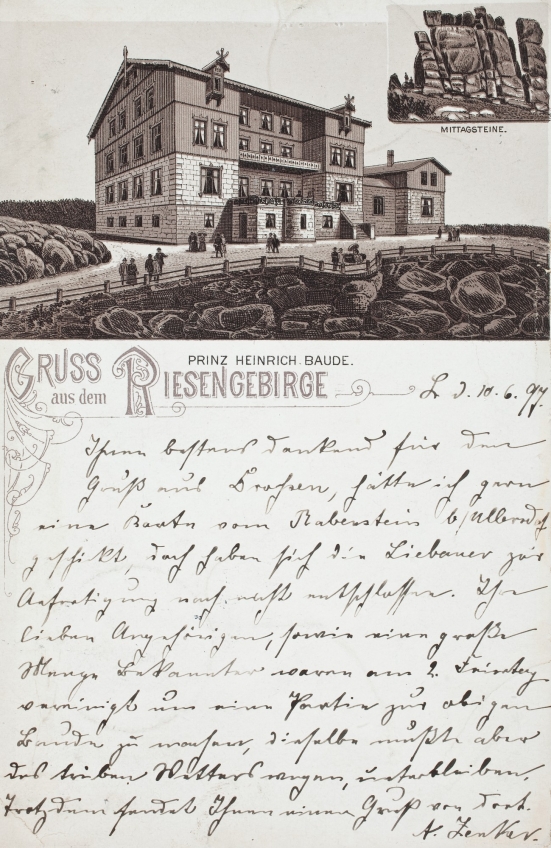 MITTAGSTEINE.
PRINZ HEINRICH BAUDE.
GRUSS
aus dem
RIESENGEBIRGE
L. d. 10.6.97.
Ihnen bestens dankend für den
Gruß aus Drohsen, hätte ich gern
eine Karte vom Rabenstein b/Ullersdf
geschikt, doch haben sich die Liebauer zur
Anfertigung noch nicht entschlossen. Ihre
lieben Angehörigen, sowie eine große
Menge Bekannter waren am 2. Feiertag
vereinigt um eine Partie zur obigen
Baude zu machen, dieselbe mußte aber
des trüben Wetters wegen, unterbleiben.
Trotzdem sendet Ihnen einen Gruß von dort.
A. Zenker.